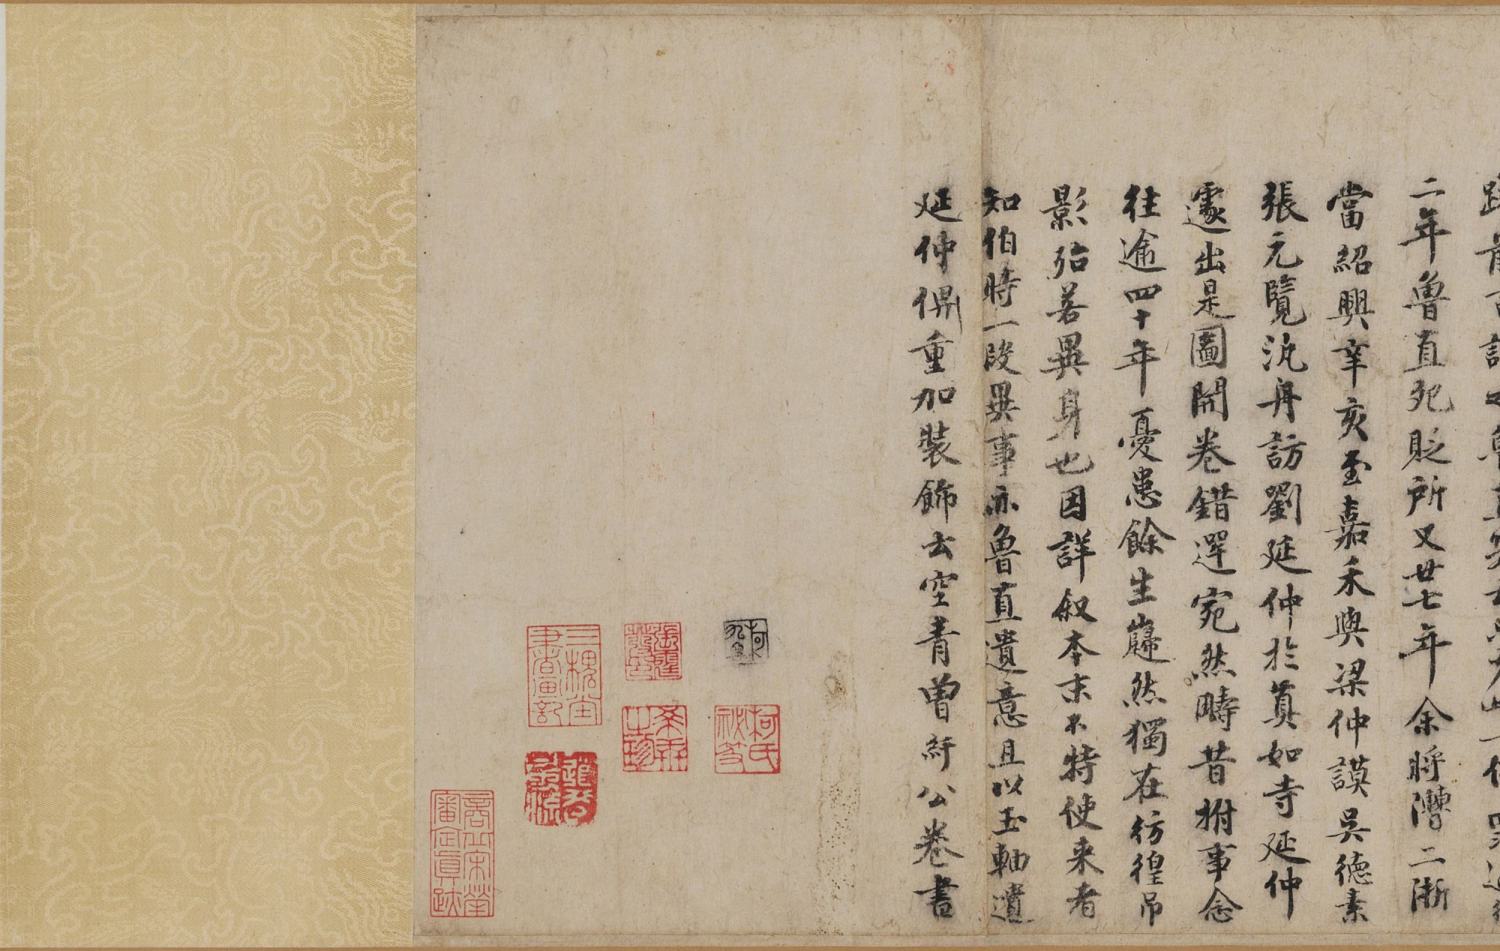 二年魯直死貶所又廿七年余將漕二漸
當紹興辛亥至嘉禾與梁仲謨吳德素
張元覽汎舟訪劉延仲於真如寺延仲
遽出是圖開卷錯愕宛然疇昔拊事念
往逾四十年憂患餘生巋然獨在彷徨吊
影殆若異身也因詳叙本末不特使来者
知伯時一段異事亦魯直遺意且以玉軸遺
延仲俾重加裝飾云空青曾紆公卷書
柯氏祕笈